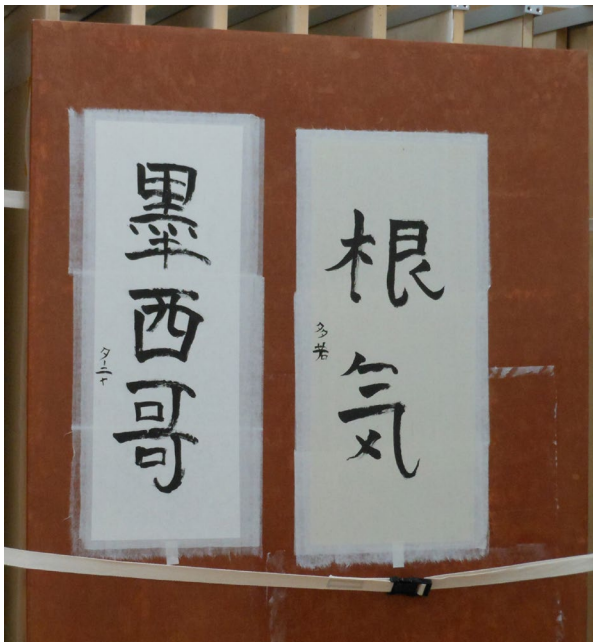 根気
多若
墨西哥
ターニャ